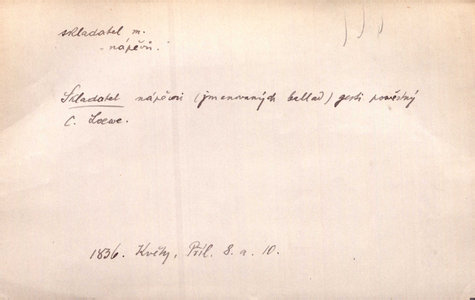 skladatel m.
nápěvů.
Skladatel nápěvů (jmenovaných ballad) jesti pověstný
C. Loewe.
1836. Květy, Příl. 8. a. 10.